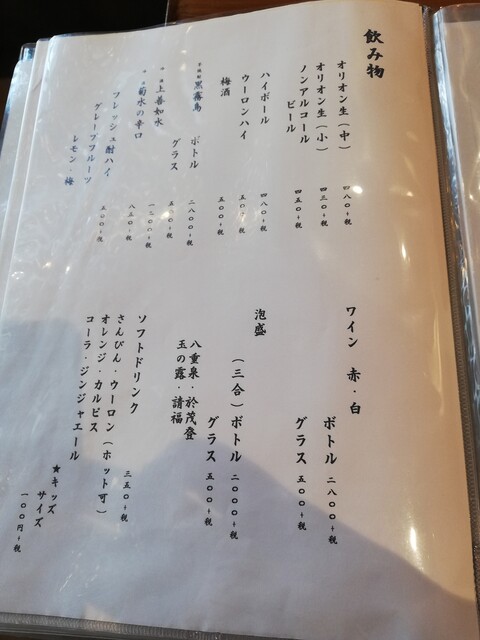 飲み物
オリオン生（中）　四八〇+税
オリオン生（小）　四三〇+税
ノンアルコール
ビール　四五〇+税
ハイボール　四八〇+税
ウーロンハイ　五〇〇+税
梅酒　五〇〇+税
黒霧島　ボトル　二八〇〇+税
グラス　五〇〇+税
上善如水　一二〇〇+税
菊水の辛口　八五〇+税
フレッシュ酎ハイ　五〇〇+税
グレープフルーツ
レモン・梅
ワイン　赤・白
ボトル　二八〇〇+税
グラス　五〇〇+税
泡盛
（三合）ボトル　二〇〇〇+税
グラス　五〇〇+税
八重泉・於茂登
玉の露・請福
ソフトドリンク　三五〇+税
さんぴん・ウーロン（ホット可）
オレンジ・カルピス
コーラ・ジンジャエール
★キッズ
サイズ
一〇〇円+税